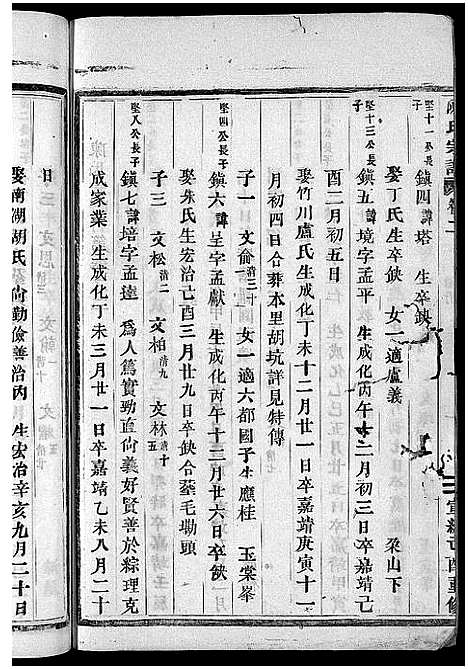 氏宗譜 卷二
宣統己酉重修
堅十一公長子 鎮四 諱塔 生卒缺
娶丁氏生卒缺 女一適盧義 梁山下
堅十三公長子 鎮五 諱境字孟平 生成化丙午十二月初三日卒嘉靖己
酉二月初五日
娶竹川盧氏生成化丁未十二月廿一日卒嘉靖庚寅十一
月初四日合葬本里胡坑詳見特傳
子一 文俞清三十 女一適六都國子生應桂 玉棠峯
堅四公長子 鎮六 諱呈字孟獻 生成化丙午十二月廿六日卒缺
娶朱氏生宏治己酉三月廿九日卒缺合葬毛塢頭
子三 文松清二 文柏清九 文林清十五
堅八公長子 鎮七 諱培字孟達 為人篤實勁直尚義好賢善於綜理克
成家業 生成化丁未三月廿一日卒嘉靖乙未八月二十
日
娶南湖胡氏尚勤儉善治內 生宏治辛亥九月二十日